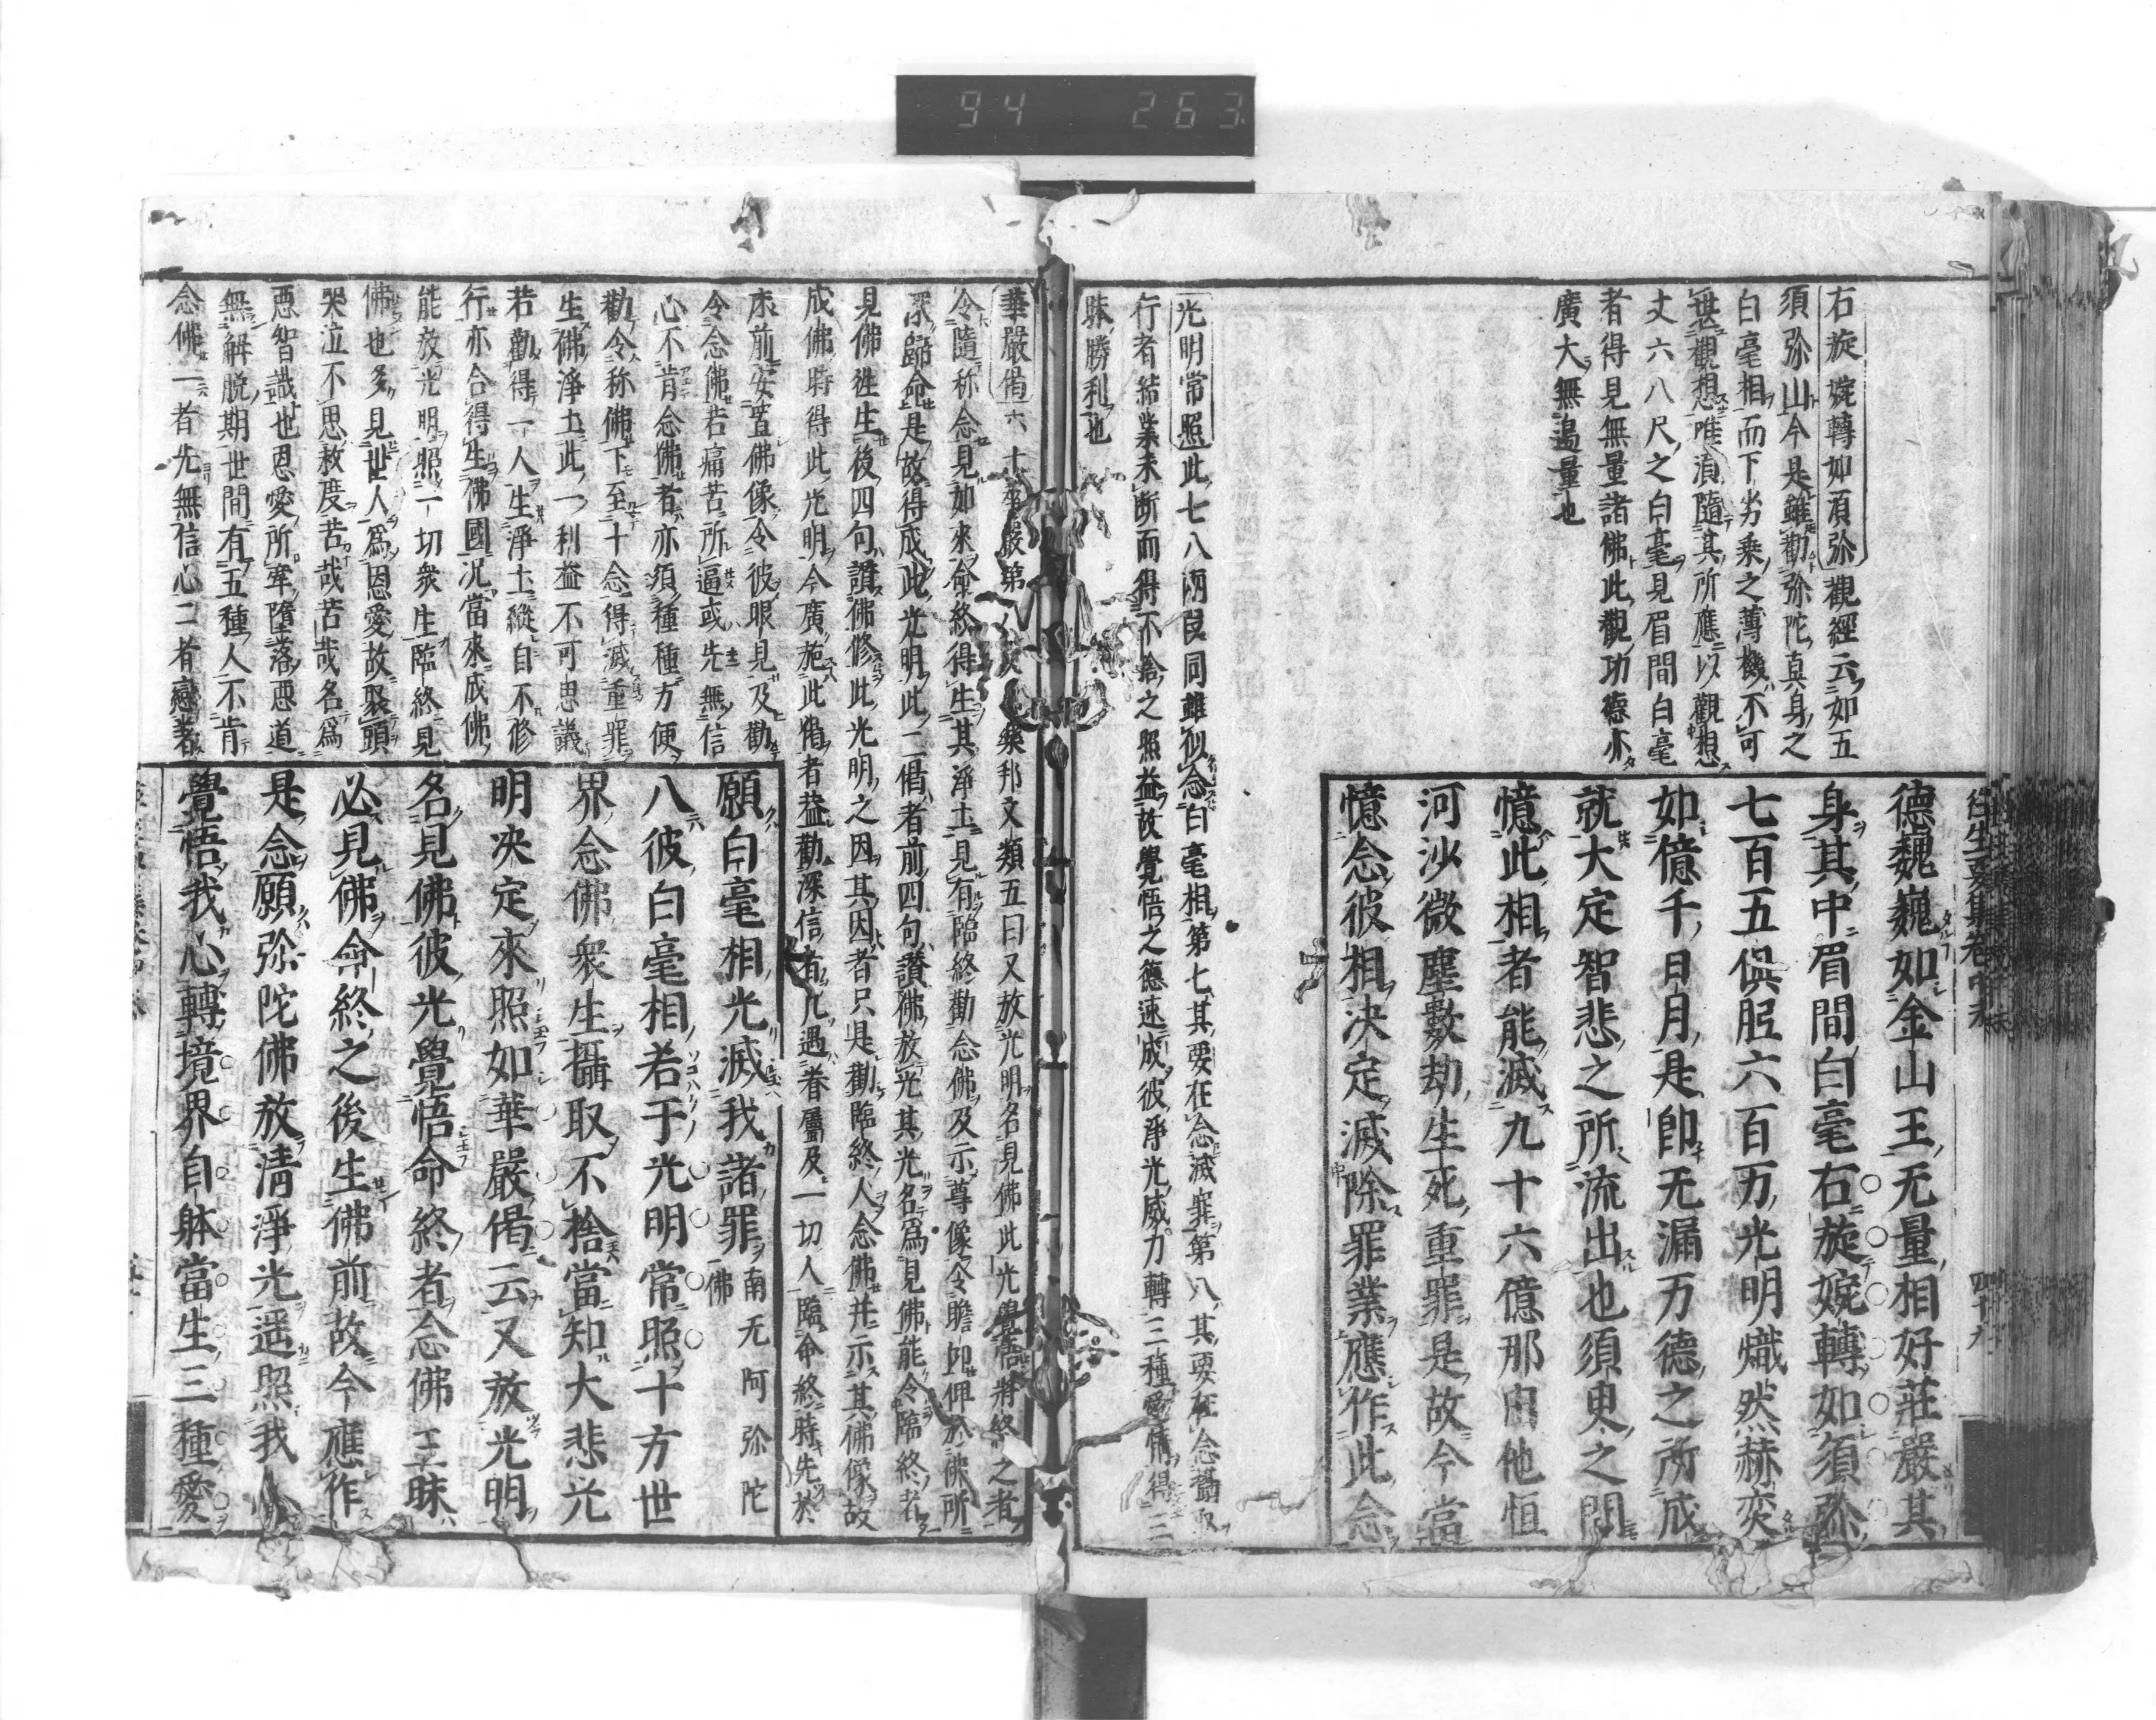 94 263
右旋婉轉如須弥觀經云如五
須弥山今是雖勸弥陀真身之
白毫相而下劣乘之薄機不可
堪觀想唯須隨其所應以觀想
丈六八尺之白毫見眉間白毫
者得見無量諸佛此觀功德亦
廣大無邊量也
德巍巍如金山王无量相好莊嚴其
身其中眉間白毫右旋婉轉如須弥
七百五俱胝六百万光明熾然赫奕
如億千日月是即无漏万德之所成
就大定智悲之所流出也須臾之間
憶此相者能滅九十六億那由他恒
河沙微塵數劫生死重罪是故今當
憶念彼相決定滅除罪業應作此念
光明常照此七八兩段同雖似念白毫相第七其要在念滅罪第八其要在念攝取
行者結業未断而得不捨之照益故覺悟之德速成彼淨光威力轉三種愛情得三
昧勝利也
華嚴偈六十華嚴第 樂邦文類五曰又放光明名見佛此光覺悟將終之者
令隨称念見如來命終得生其淨土見有臨終勸念佛及示尊像令瞻 於佛所
深歸命是故得成此光明此二偈者前四句讃佛放光其光名爲見佛能令臨終者
見佛徃生後四句讃佛修此光明之因其因者只是勸臨終人念佛并示其佛像故
成佛時得此光明今廣施此偈者益勸深信者凡遇眷屬及一切人臨命終時先於
床前安置佛像令彼眼見及勸
令念佛若痛苦所逼或先無信
心不肯念佛者亦須種種方便
勸令称佛下至十念得滅重罪
生佛淨土此一利益不可思議
若勸得一人生淨土縱自不修
行亦合得生佛國况當來成佛
能放光明照一切衆生臨終見
佛也多見世人爲恩愛故聚頭
哭泣不思救度苦哉苦哉名爲
惡智識也恩愛所牽墮落惡道
無解脱期世間有五種人不肯
念佛一者先無信心二者戀著
願白毫相光滅我諸罪南无阿弥陀佛
八彼白毫相若干光明常照十方世
界念佛衆生攝取不捨當知大悲光
明決定來照如華嚴偈云又放光明
名見佛彼光覺悟命終者念佛三昧
必見佛命終之後生佛前故今應作
是念願弥陀佛放清淨光遥照我
覺悟我心轉境界自躰當生三種愛